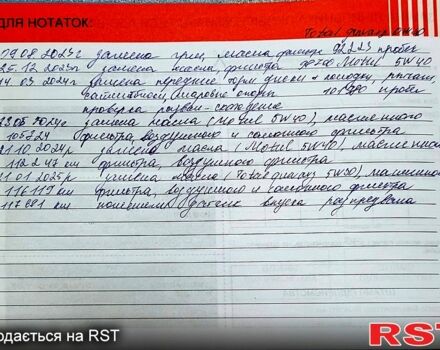 ДЛЯ НОТАТОК:
Total
09.08.2023г замена грм, масла 92223 пробег
25.12.2023г замена масла, фильтра Motul 5W40
14.03.2024г замена передние торм диски и колодки, рычаги,
шаровые опоры 101980 пробег
проверка развал-схождение
замена масла (Motul 5W40), масленного
105724 фильтра, воздушного и салонного фильтра
21.10.2024г замена масла (Motul 5W40),
112247 км фильтра, воздушного фильтра
21.01.2025г замена масла (Total 5W30),
116119 км фильтра, воздушного и салонного фильтра
117681 км датчик впуска распредвала
одається на RST
RST